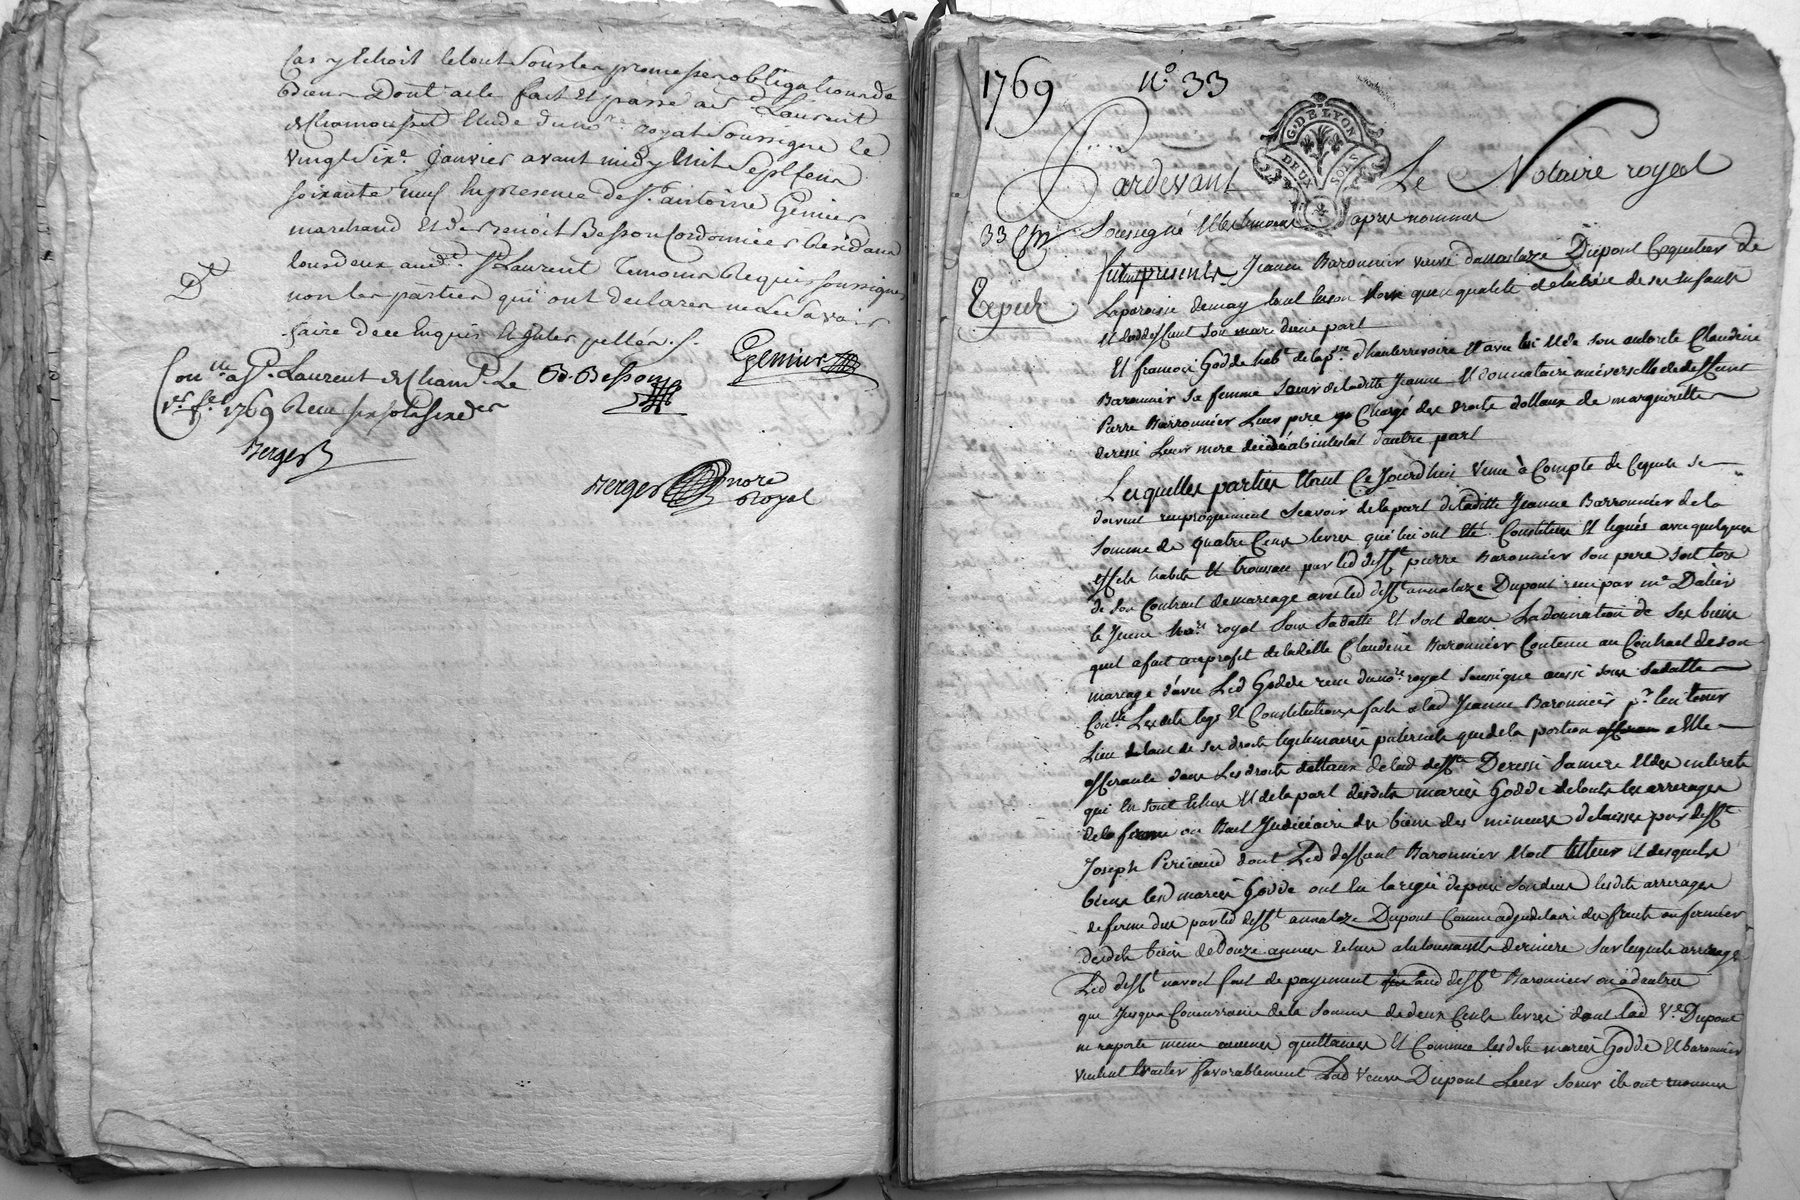 Cas y Echoit le tout sous les promesses obligations de
biens Dont acte fait Et passé a St Laurent
de Chamousset Etude du no.re royal soussigné le
vingt sixe Janvier avant midy mil sept cens
soixante neuf En presence de sr. antoine Genier
marchand Et de benoit Besson Cordonnier Residans
tous deux aud.t St Laurent Temoins Requis soussignes
non les parties qui ont declarés ne le savoir
faire de ce Enquis Et Interpellés.
Dt
Con.lle a St. Laurent de Cham.t Le
1er fe. 1769 Reçu six sols six ders
Berger
B. Besson
Genier
Berger no.re
Royal
1769 n.o 33
G. DE LYON
DEUX SOLS
Pardevant Le Notaire royal
33
Soussigné Et les temoins apres nommes
Expedié
furent presents Jeanne Baronnier veuve d'annataze Dupont de
La paroisse de may tant En son nom qu'en qualité de de ses Enfants
Et dud deffunt son mari d'une part
Et francois Godde hab.t de la p.sse d'hauterrivoire Et avec lui Et de son autorité Claudine
Baronnier sa femme soeur de laditte Jeanne Et donnataire universelle de deffunt
Pierre Barronnier Leur pere Chargé des droits dottaux de margueritte
deressi Leur mere decedée ab intestat d'autre part
Lesquelles parties Etant Ce Jourd'hui venu à Compte de Ce qu'elles se
doivent reciproquement scavoir de la part de laditte Jeanne Barronnier de la
somme de quatre Cens livres qui lui ont Eté Constitués Et legués avec quelques
effets habits Et trousseau par led deff.t pierre Baronnier son pere soit lors
de son Contract de mariage avec led deff.t annataze Dupont reçu par m.e Dalier
le Jeune no.re royal sous sa datte Et soit dans La donnation de ses biens
qu'il a fait au profit de laditte Claudine Baronnier Contenue au Contract de son
mariage d'avec Led Godde reçu du no.re royal soussigné aussi sous sa datte
Con.lle Lesdits legs Et Constitutions faits a lad Jeanne Baronnier p.r lui tenir
Lieu de tout de ses droits legitimaires paternels que de la portion a Elle
afferante dans Les droits dottaux de lad deff.te Deressi sa mere Et des interets
qui En sont Echus Et de la part desdits mariés Godde de touts les arrerages
de la ferme ou Bail Judiciaire des biens des mineurs delaissés par deff.t
Joseph Periaud dont Led deffunt Baronnier Etoit tuteur Et desquels
biens lesd mariés Godde ont Eu la regie depuis son deces lesdits arrerages
de ferme dus par led deff.t annataze Dupont Comme adjudicataire des fruits ou fermier
desdits biens de Douze annees Echus a la toussaints derniere sur lesquels arrerages
Led deff.t n'avoit fait de payement aud deff.t Baronnier ou à d'autres
que Jusqu'a Concurrance de la somme de deux Cents livres dont lad V.e Dupont
ne raporte meme aucunes quittances Et Comme lesdits mariés Godde Et baronnier
veulent traiter favorablement Lad veuve Dupont Leur soeur ils ont